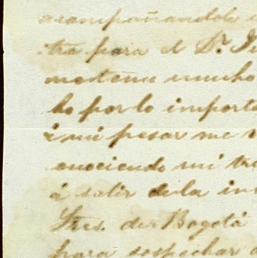 acompañandole
tra para el Dr. Ju
mucho
to por lo importa
i mi pesar me
enociendo mi tra
á salir de la in
Sres. de Bogotá
para sospechar